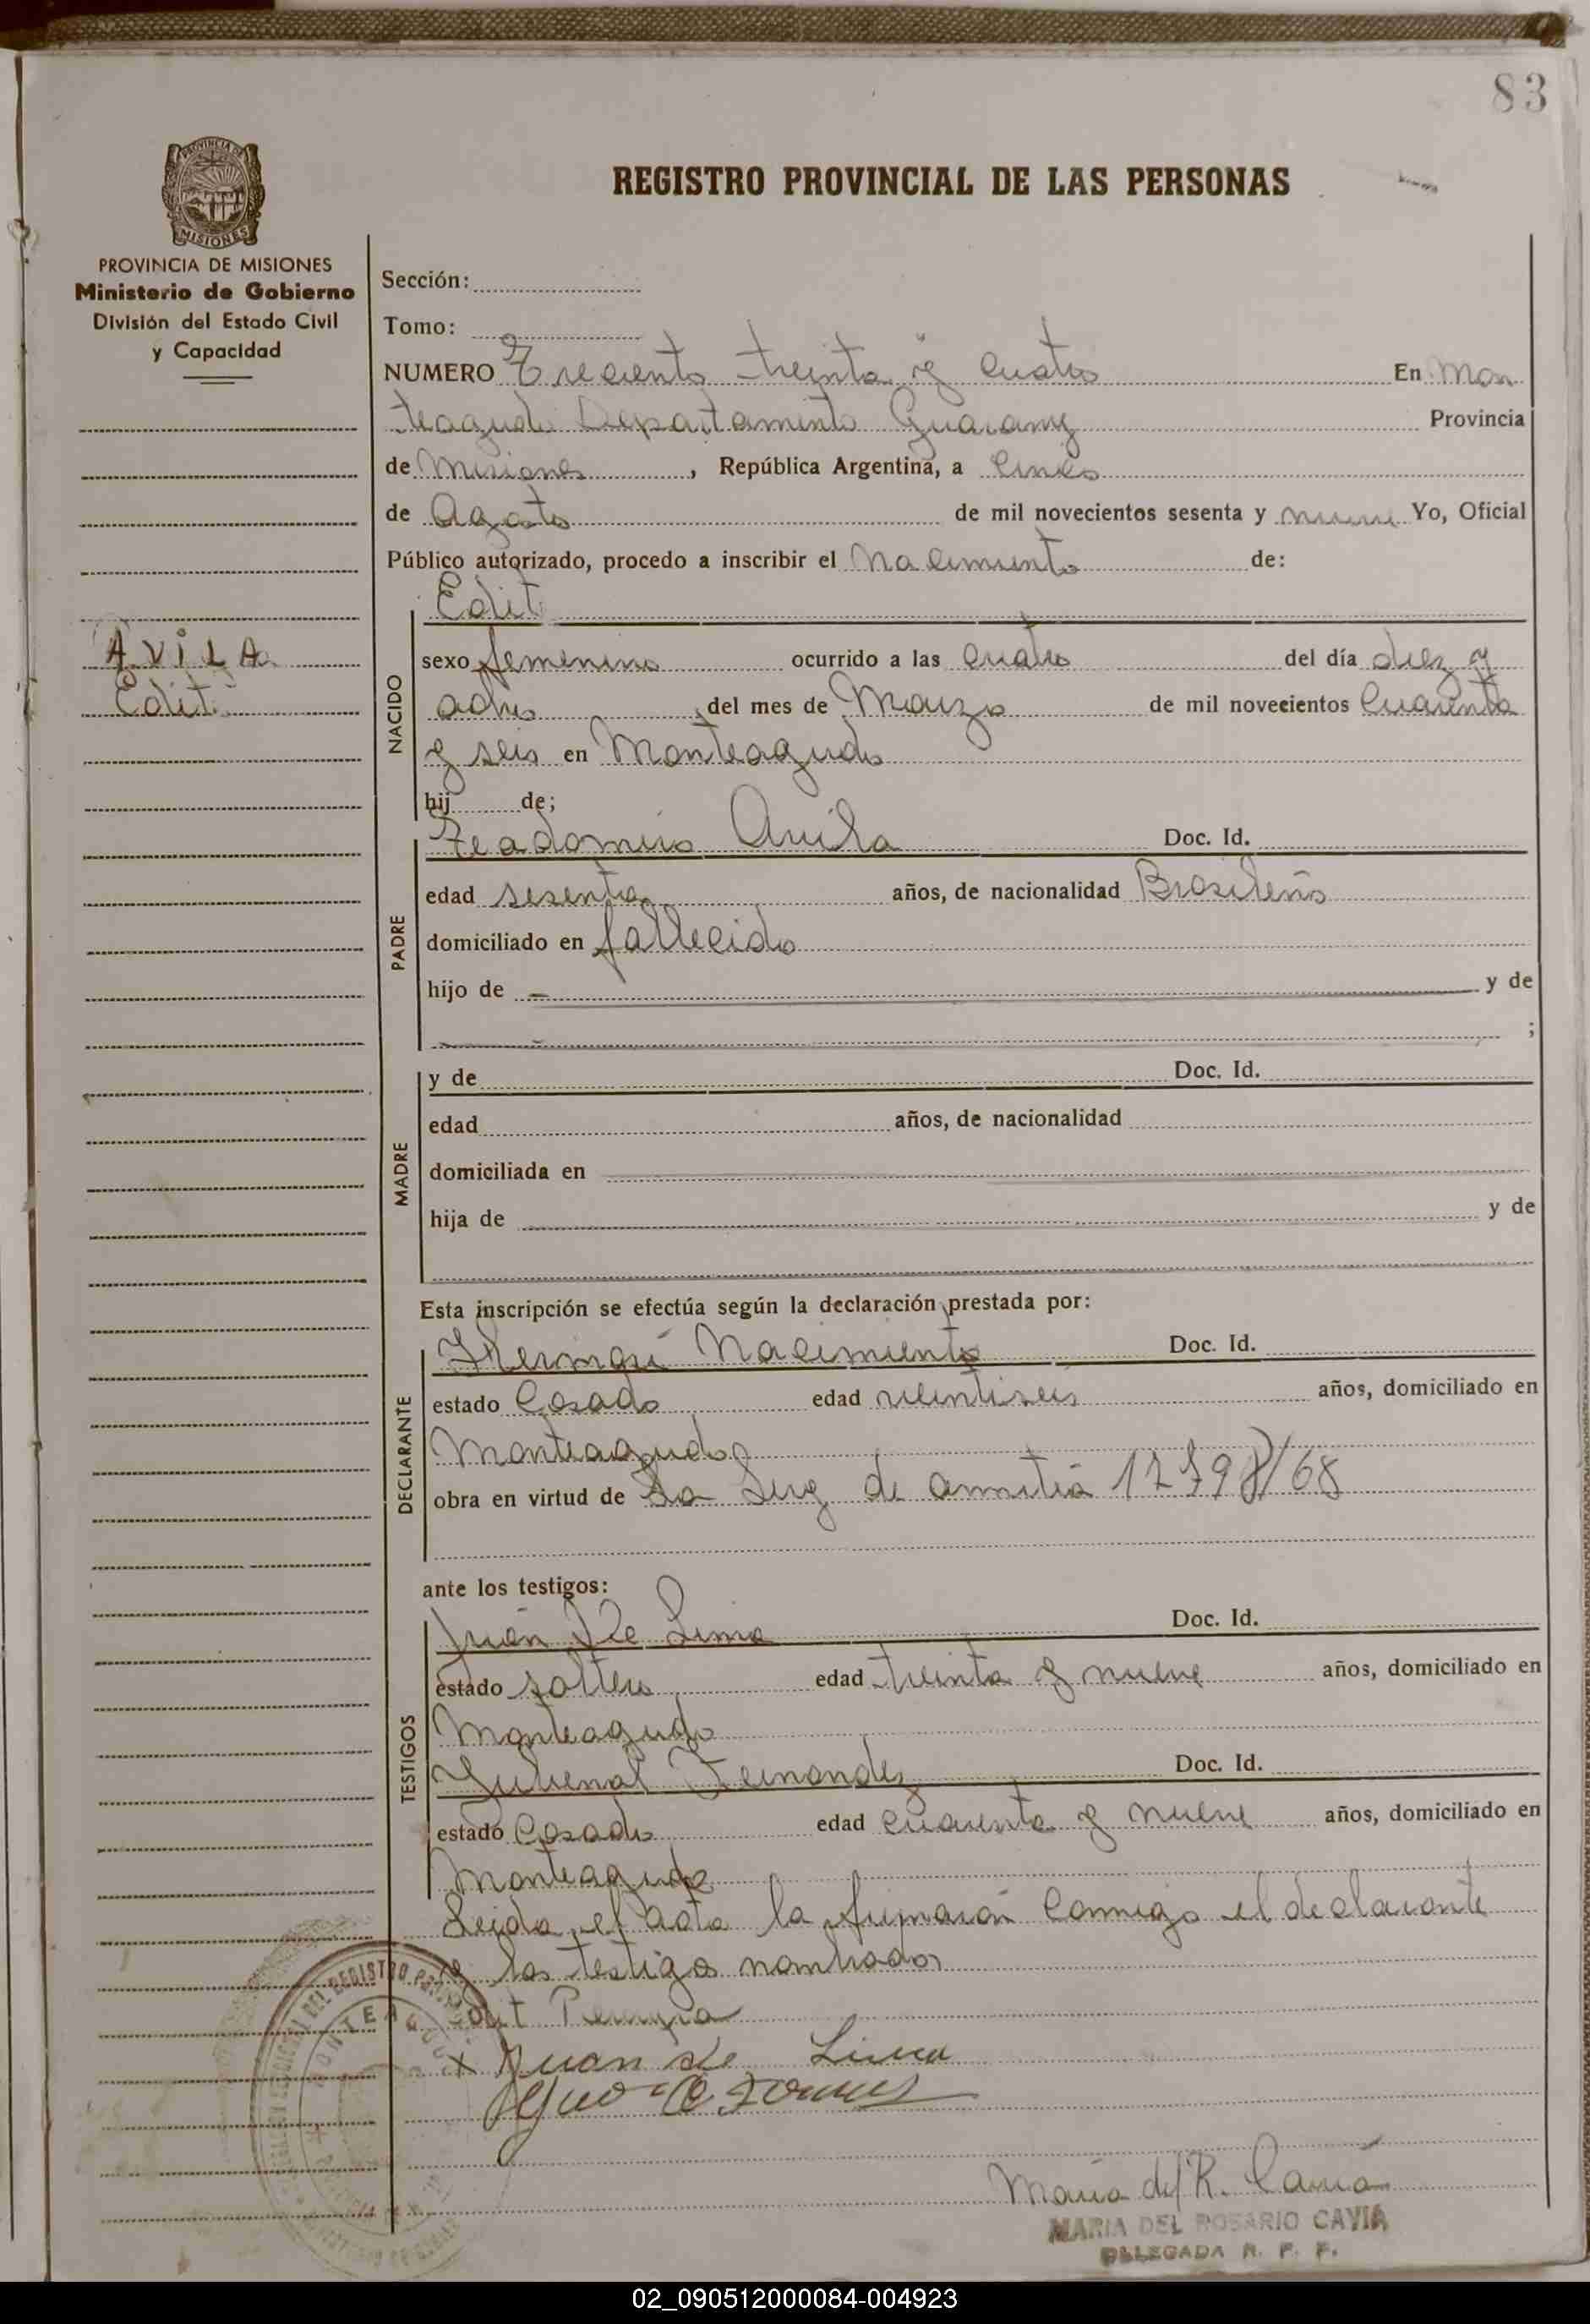 83
PROVINCIA DE
MISIONES
PROVINCIA DE MISIONES
Ministerio de Gobierno
División del Estado Civil
y Capacidad
AVILA
Edit
REGISTRO PROVINCIAL DE LAS PERSONAS
Sección:
Tomo:
NUMERO Treciento treinta y cuatro En Mon
teagudo Departamento Guarany Provincia
de Misiones, República Argentina, a Cinco
de Agosto de mil novecientos sesenta y nueve Yo, Oficial
Público autorizado, procedo a inscribir el Nacimiento de:
NACIDO
Edit
sexo femenino ocurrido a las cuatro del día diez y
ocho del mes de Marzo de mil novecientos Cuarenta
y seis en Monteagudo
hij de;
PADRE
Teadomiro Avila Doc. Id.
edad sesenta años, de nacionalidad Brasileño
domiciliado en fallecido
hijo de y de
;
MADRE
y de Doc. Id.
edad años, de nacionalidad
domiciliada en
hija de y de
Esta inscripción se efectúa según la declaración prestada por:
DECLARANTE
Nacimiento Doc. Id.
estado Casado edad veintiseis años, domiciliado en
Monteagudo
obra en virtud de La de
ante los testigos:
TESTIGOS
Juan De Lima Doc. Id.
estado soltero edad treinta y nueve años, domiciliado en
Monteagudo
Fernandez Doc. Id.
estado Casado edad cuarenta y nueve años, domiciliado en
Monteagudo
Leida el acta la firmaron conmigo el declarante
y los testigos nombrados
Edit Pereyra
x Juan de Lima
Maria del R. Cavia
MARIA DEL ROSARIO CAVIA
DELEGADA R. P. P.
MONTEAGUDO
02_090512000084-004923